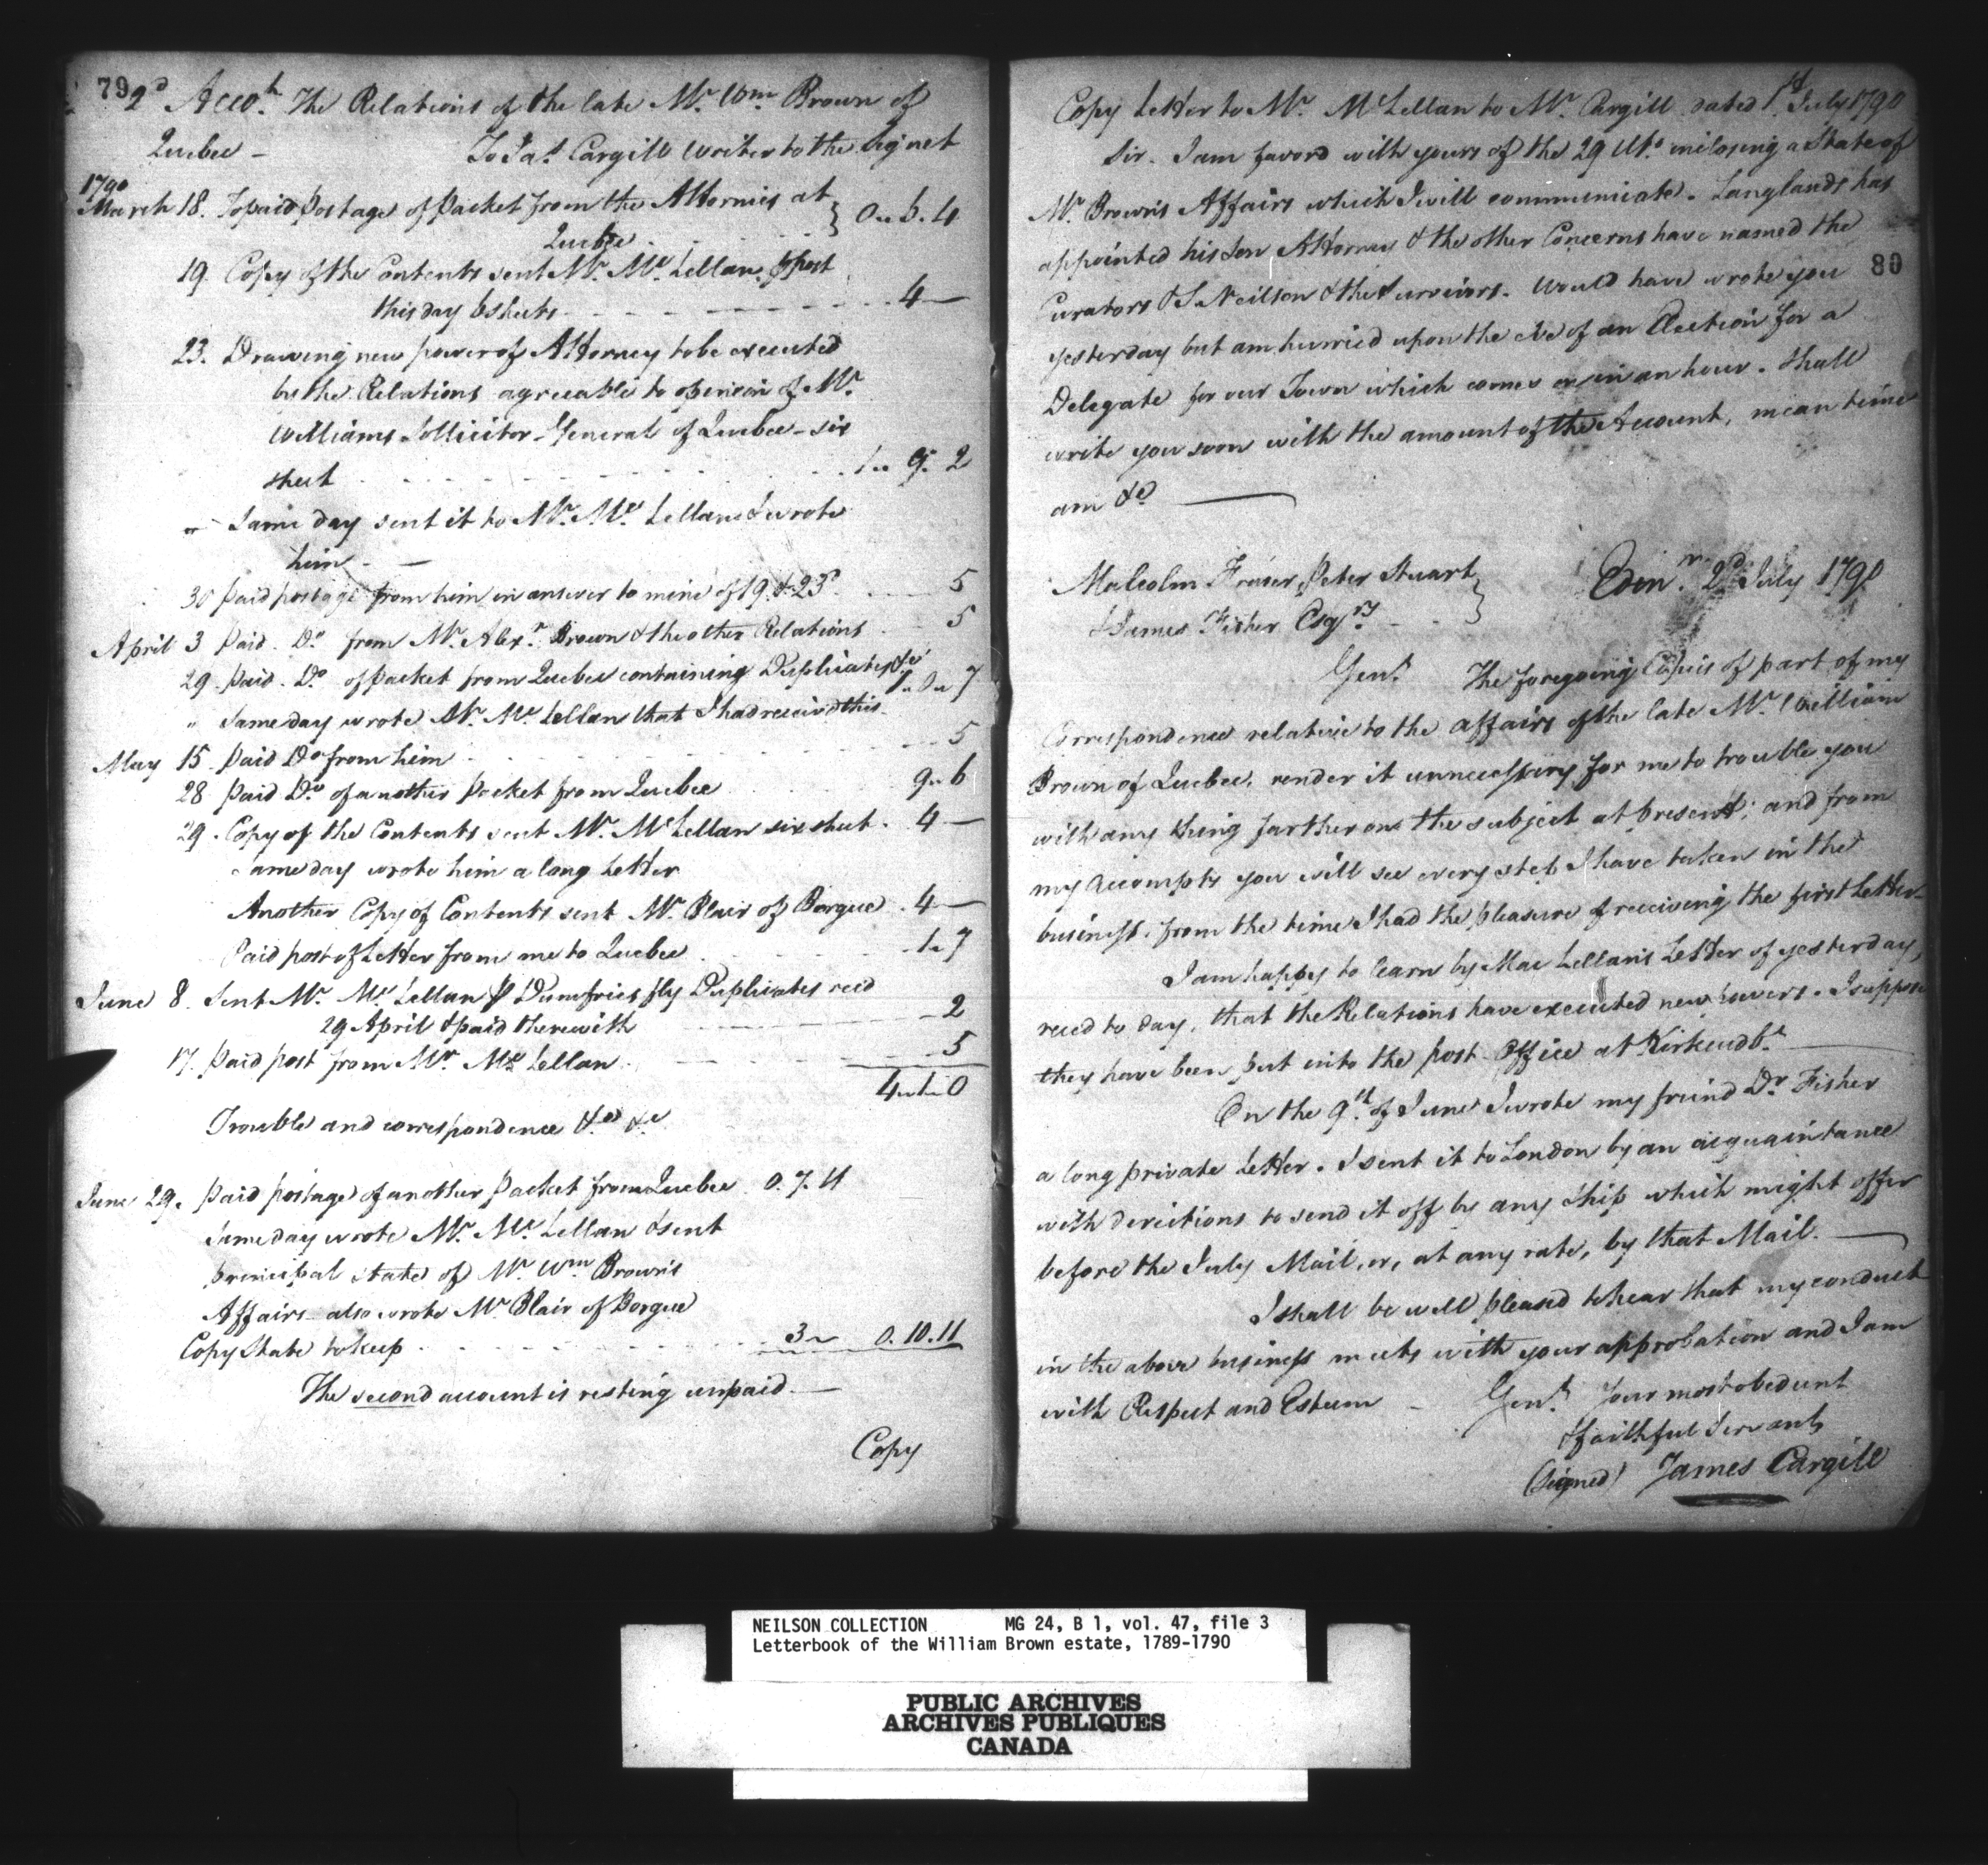 79
2d Accot. The Relations of the late Mr. Wm Brown of
Quebec – To Jas. Cargill Writer to the Signet
1790
March 18. To paid Postage of Packet from the Attornies at
Quebec 0 " 6 . 4
19. Copy of the Contents sent Mr. Mc Lellan p post
this day 6 sheets 4 —
23. Drawing new power of Attorney to be executed
by the Relations agreeable to opinion of Mr.
Williams Sollicitor-General of Quebec – six
sheet 1 " 9 " 2
" Same day sent it to Mr. Mc Lellan & wrote
him –
30 Paid postage from him in answer to mine of 19. & 23d. 5
April 3 Paid . Do from Mr. Alexr. Brown & the other Relations 5
29. Paid . Do of Packet from Quebec containing Duplicates &c 1 " 0 " 7
" Same day wrote Mr. Mc Lellan that I had received this.
May 15. Paid Do from him 5
28. Paid Do. of another Packet from Quebec 9 " 6
29. Copy of the Contents sent Mr. Mc Lellan six sheet . 4 —
Same day wrote him a long Letter
Another Copy of Contents sent Mr. Blair of Borgue . 4 —
Paid post of Letter from me to Quebec 1 " 7
June 8. Sent Mr. Mc Lellan p Dumfries fly Duplicates recd
29 April & paid therewith 2
17. Paid post from Mr. Mc Lellan 5
4 " 1 " 0
Trouble and correspondence &c &c
June 29. Paid postage of another Packet from Quebec 0. 7. 11
Same day wrote Mr. Mc Lellan & sent
principal state of Mr. Wm Brown's
Affairs – also wrote Mr Blair of Borgue
Copy State to keep 3 " 0. 10. 11
The second account is resting unpaid. —
Copy
Copy Letter to Mr. McLellan to Mr. Cargill dated 1st July 1790
Sir. I am favord with yours of the 29 Ulto. inclosing a State of
Mr. Brown's Affairs which I will communicate. Langlands has
appointed his Son Attorney & the other Concerns have named the
80
Curators & S Neilson & the Survivors. Would have wrote you
yesterday but am hurried upon the eve of an Election for a
Delegate for our Town which comes on in an hour. Shall
write you soon with the amount of the Account, mean time
am &c —
Malcolm Fraser, Peter Stuart
& James Fisher Esqrs
Edinr. 2d July 1790
Gent. The foregoing Copies of part of my
Correspondence relative to the affairs of the late Mr. William
Brown of Quebec, render it unnecessary for me to trouble you
with any thing farther on the subject at present; and from
my accompts you will see every step I have taken in the
business, from the time I had the pleasure of receiving the first Letter –
I am happy to learn by Mac Lellan's Letter of yesterday,
recd to day, that the Relations have executed new powers. I suppose
they have been put into the post Office at Kirkcudbt. —
On the 9th of June I wrote my friend Dr Fisher
a long private Letter. I sent it to London by an acquaintance
with directions to send it off by any Ship which might offer
before the July Mail, or, at any rate, by that Mail. —
I shall be well pleased to hear that my conduct
in the above business meets with your approbation and I am
with Respect and Esteem – Gent. Your most obedient
& faithful Servant
(signed) James Cargill
NEILSON COLLECTION MG 24, B 1, vol. 47, file 3
Letterbook of the William Brown estate, 1789-1790
PUBLIC ARCHIVES
ARCHIVES PUBLIQUES
CANADA